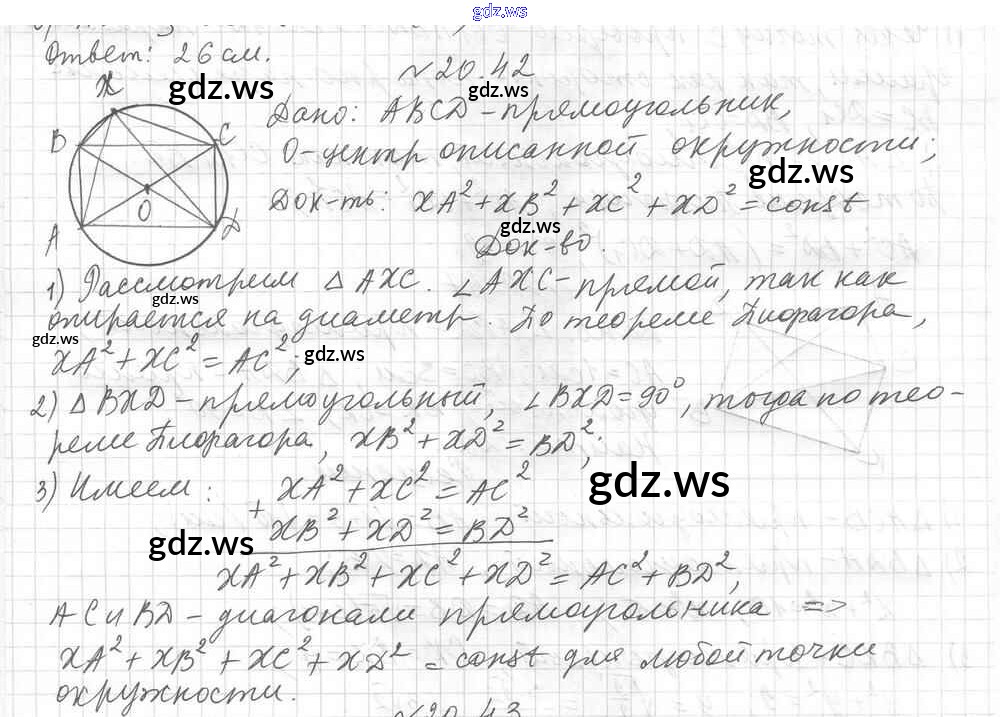 gdz.ws
Ответ: 26 см.
№20.42
Дано: ABCD - прямоугольник,
O - центр описанной окружности;
Док-ть: XA² + XB² + XC² + XD² = const
Док-во.
1) Рассмотрим △AXC. ∠AXC - прямой, так как
опирается на диаметр. По теореме Пифагора,
XA² + XC² = AC²;
2) △BXD - прямоугольный, ∠BXD = 90°, тогда по тео-
реме Пифагора, XB² + XD² = BD²;
3) Имеем: XA² + XC² = AC²
+
XB² + XD² = BD²
XA² + XB² + XC² + XD² = AC² + BD²,
AC и BD - диагонали прямоугольника =>
XA² + XB² + XC² + XD² = const для любой точки
окружности.
№20.43
X
B
C
O
A
D
gdz.ws
gdz.ws
gdz.ws
gdz.ws
gdz.ws
gdz.ws
gdz.ws
gdz.ws
gdz.ws